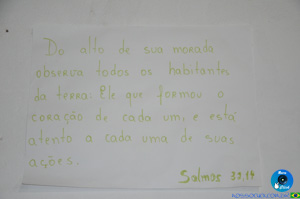 Do alto de sua morada
observa todos os habitantes
da terra. Ele que formou o
coração de cada um, e está
atento a cada uma de suas
ações.
Salmos 33,14